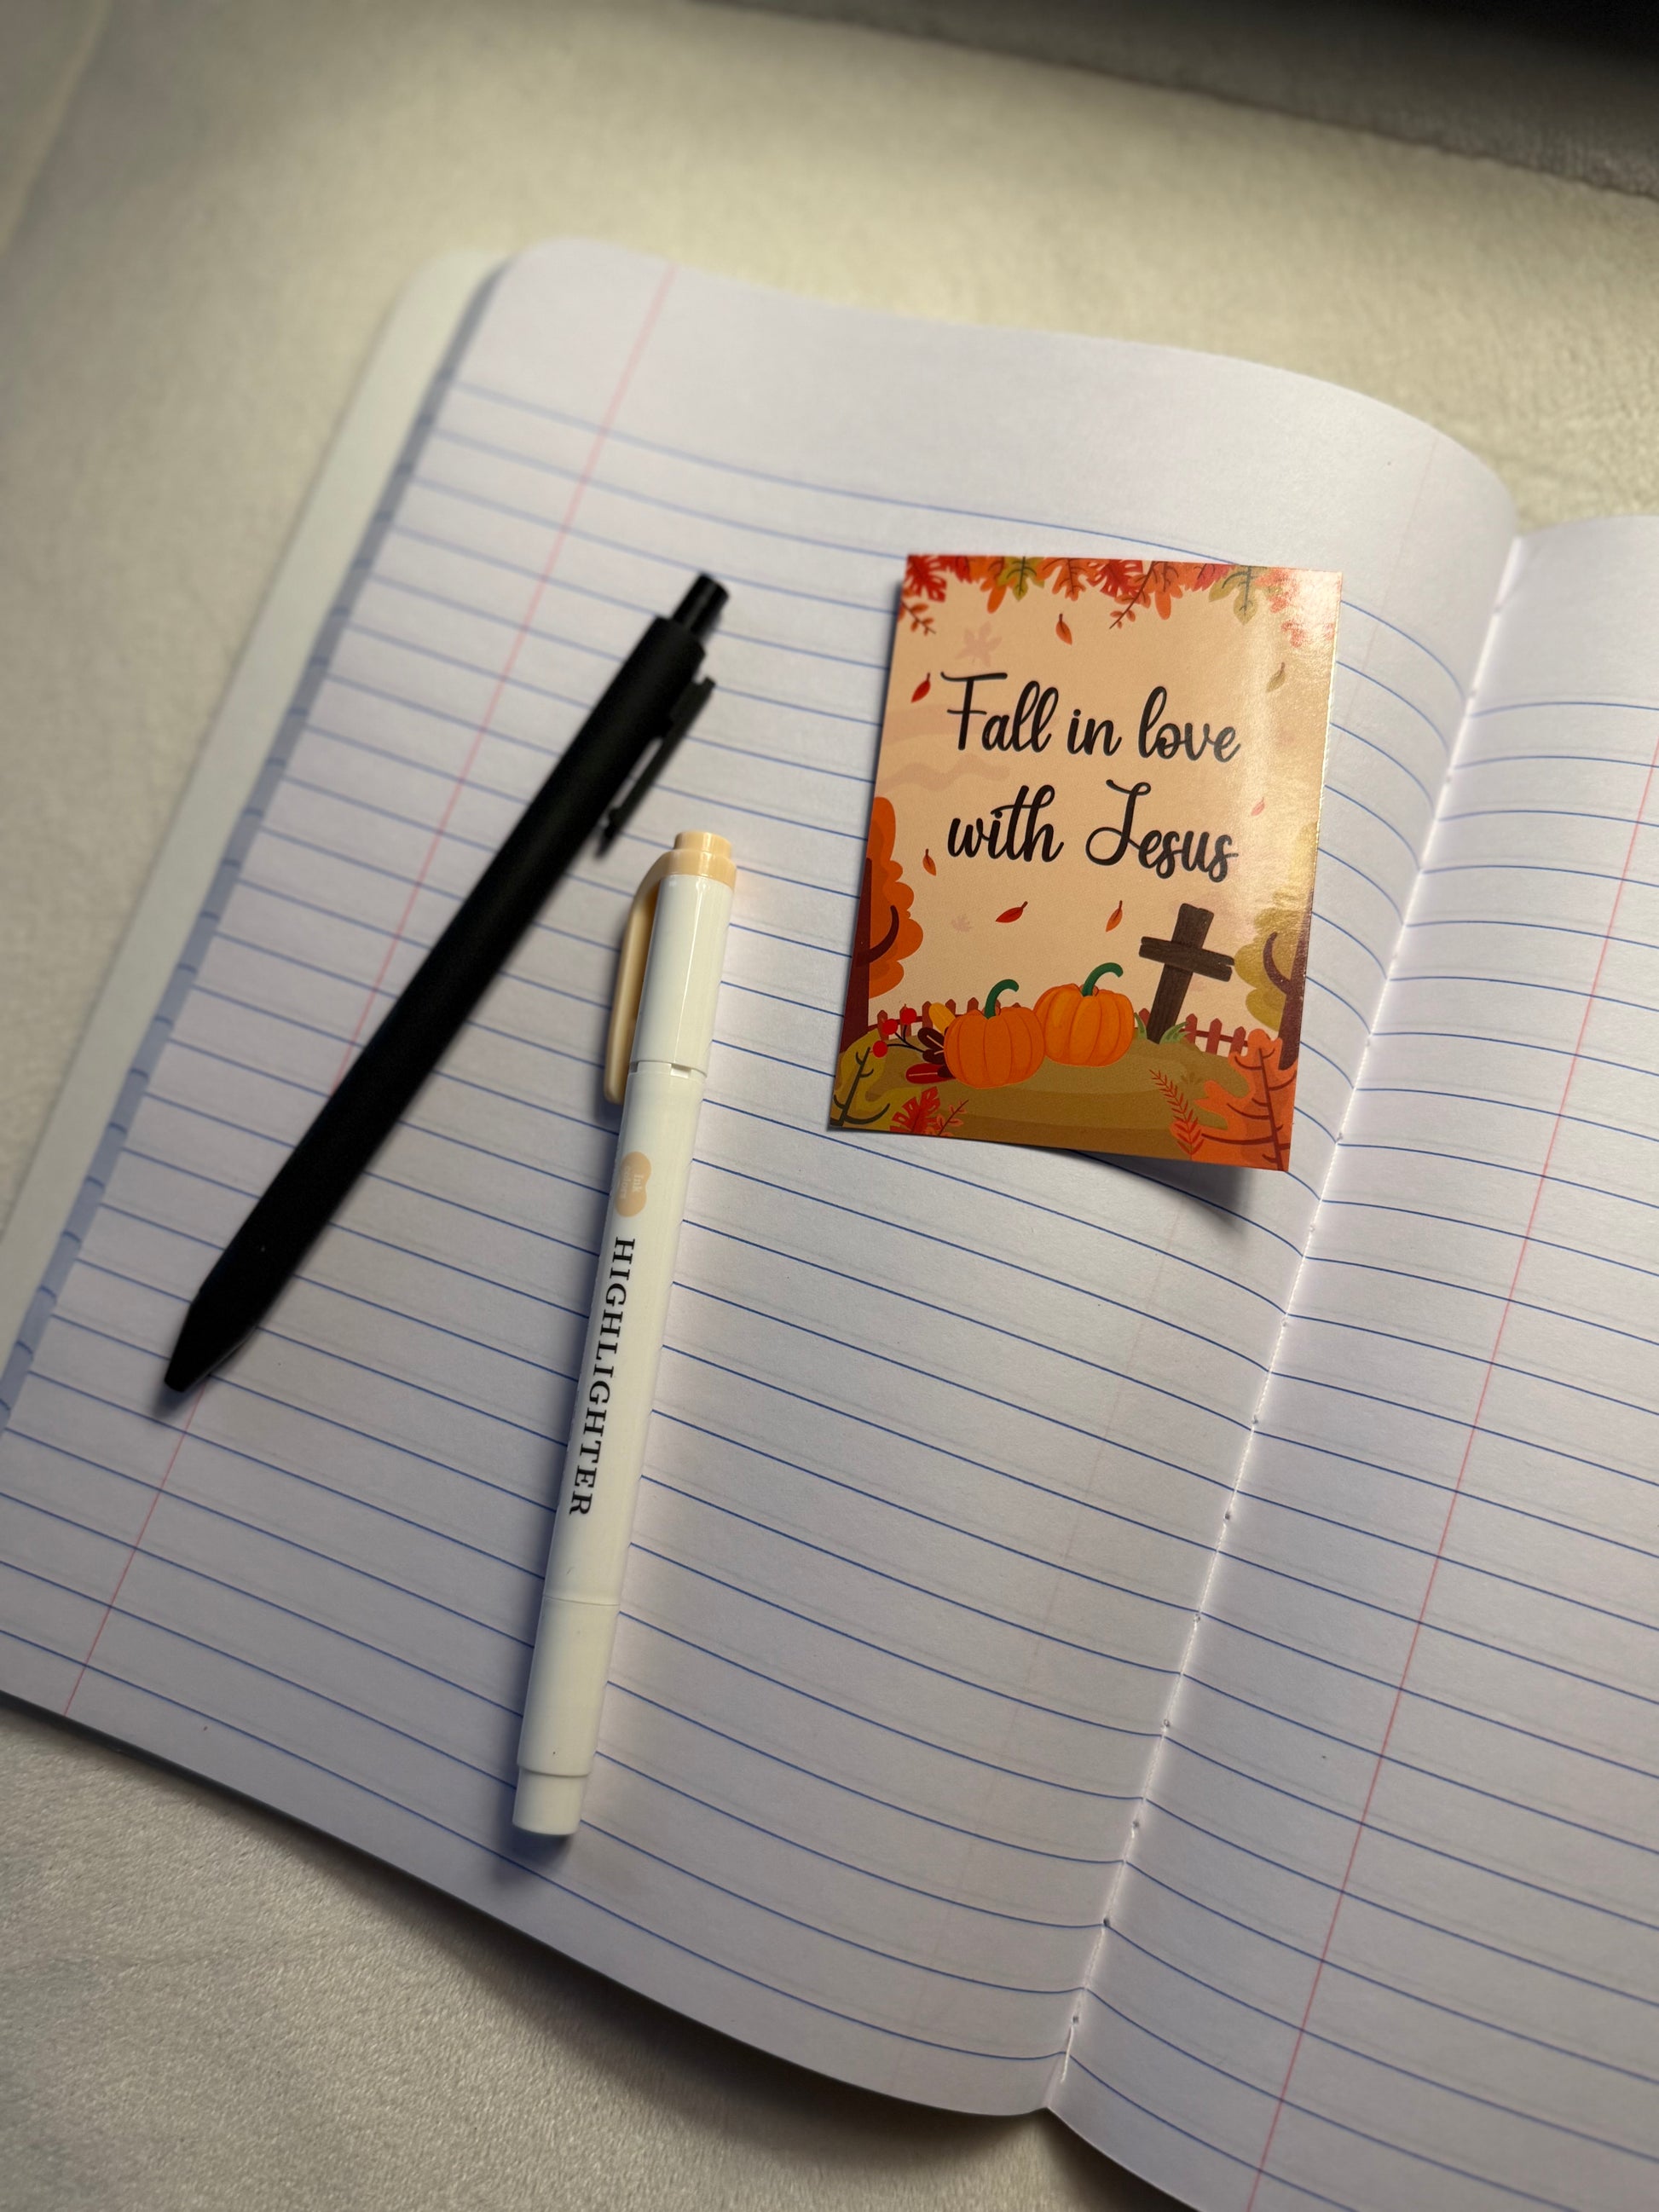 Fall in love
with Jesus
HIGHLIGHTER